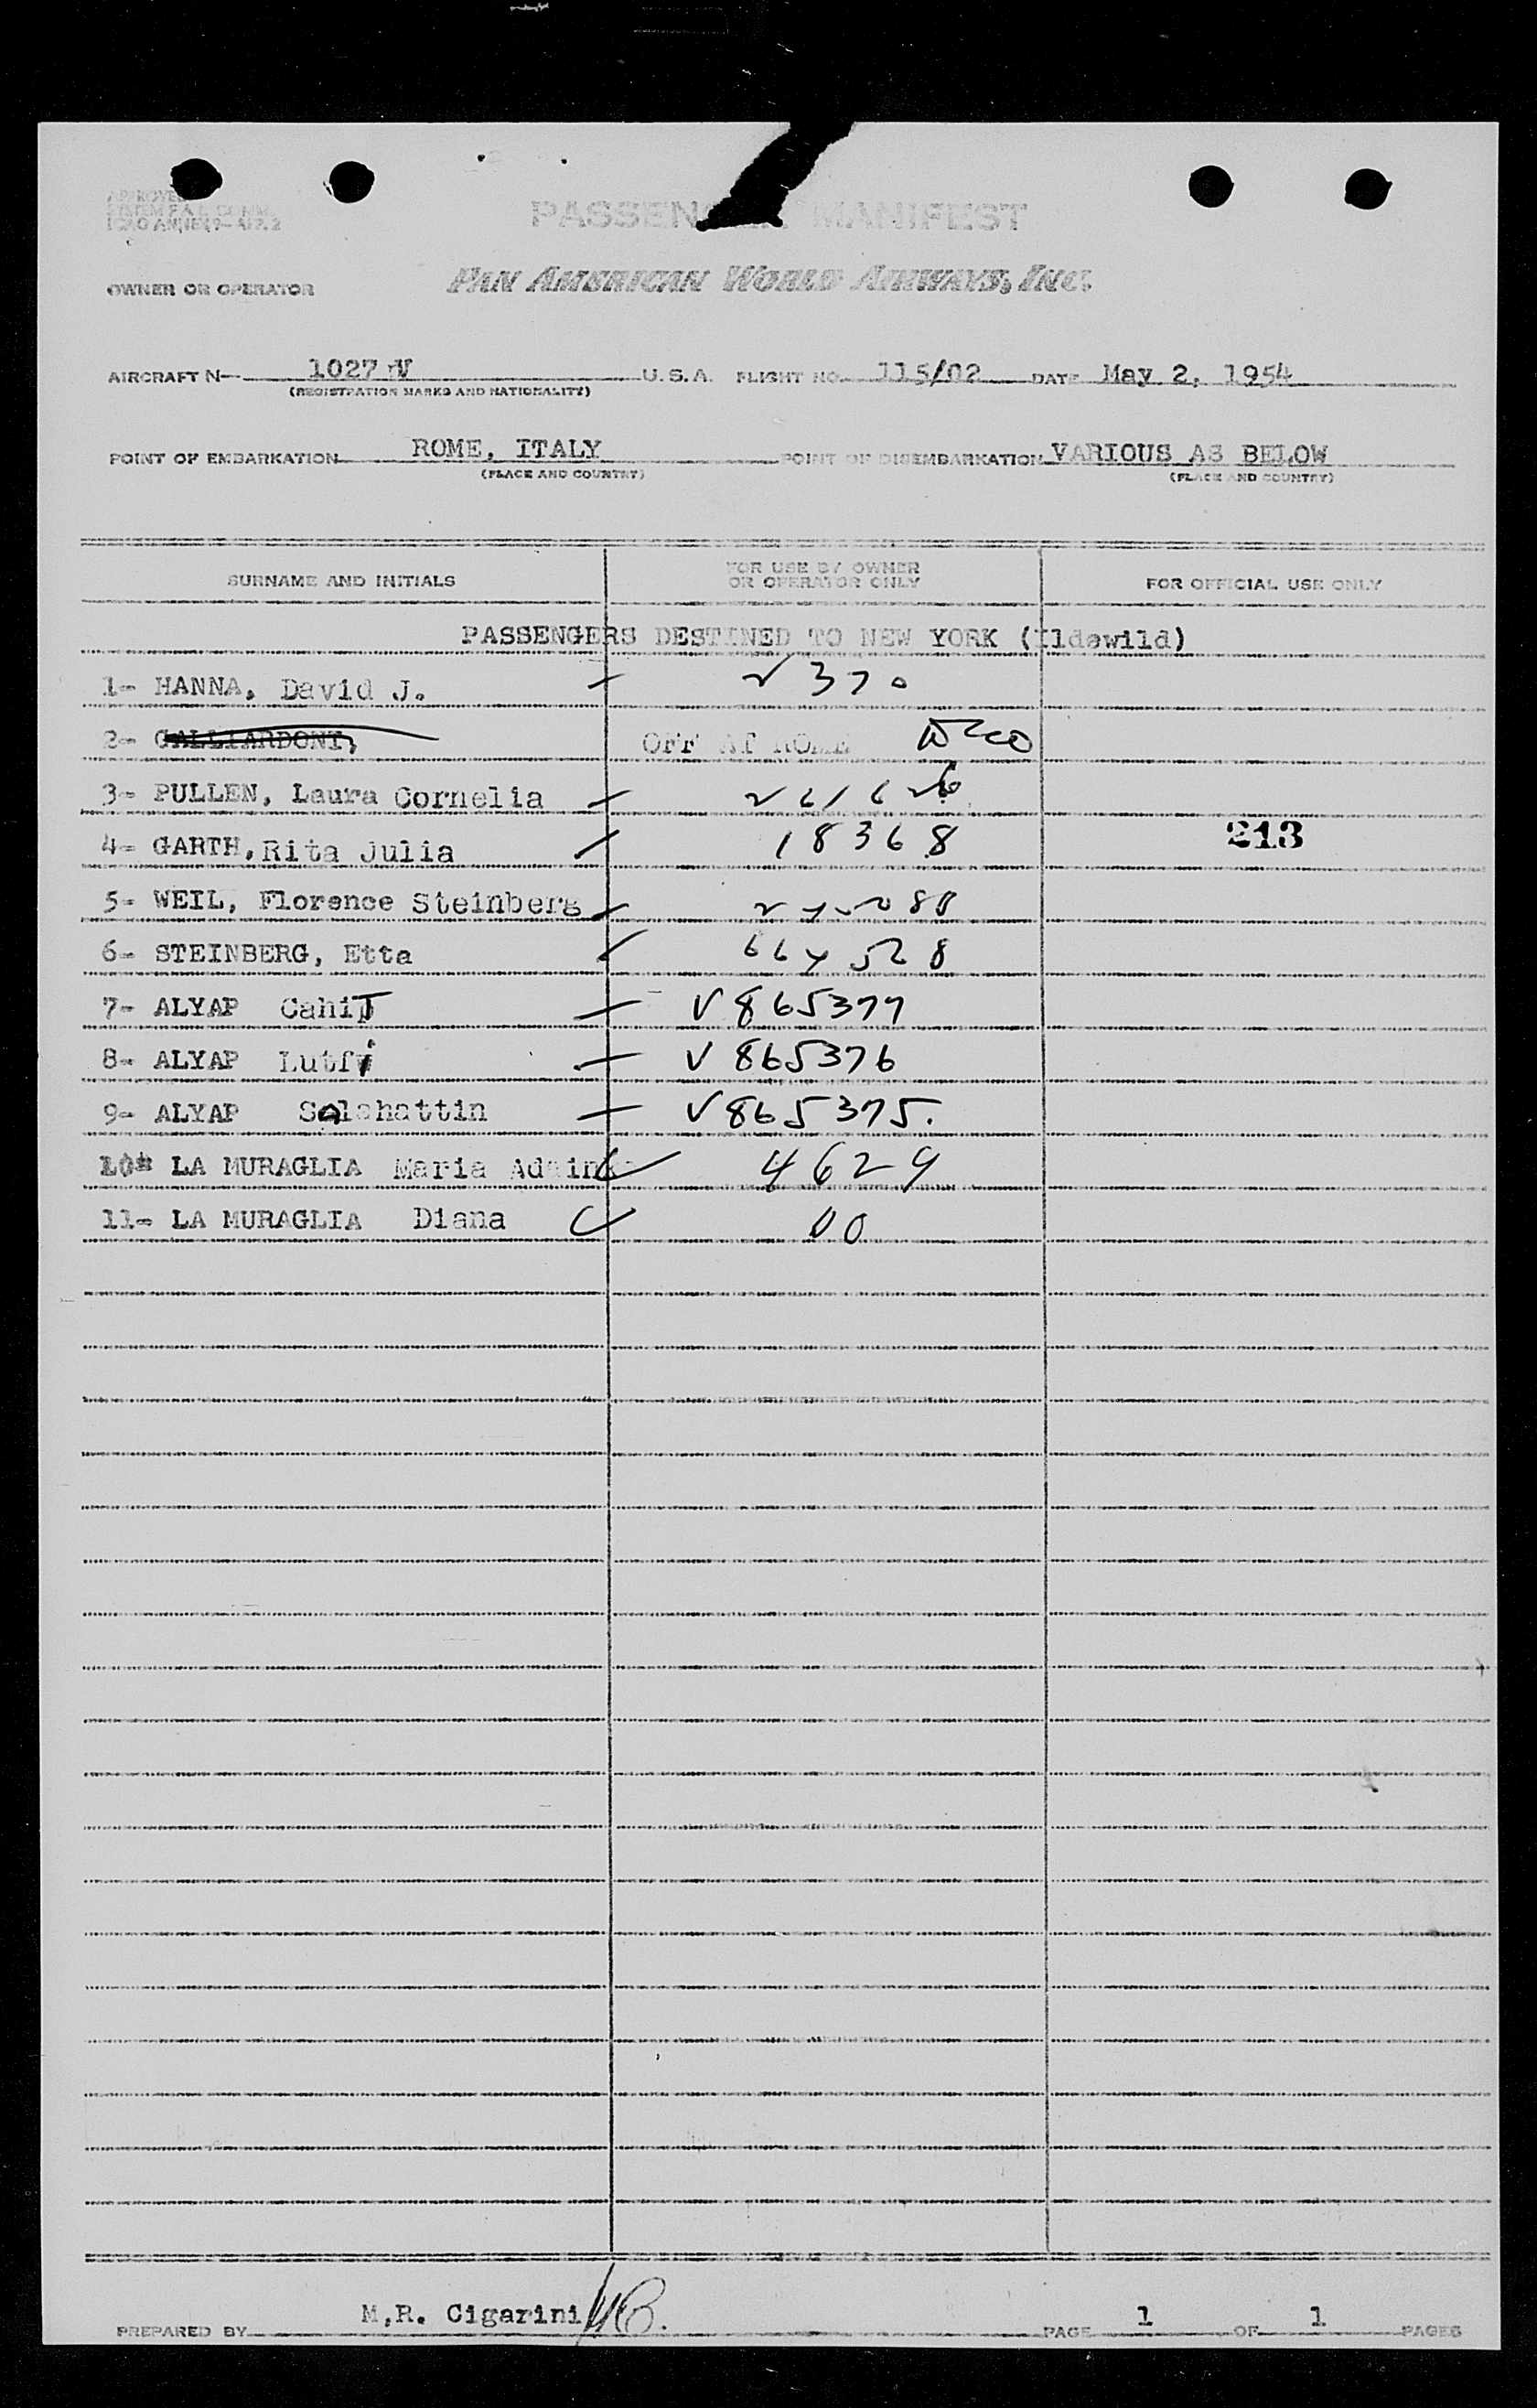 APPROVED
ICAO ANNEX 9—APP. 2
PASSENGER MANIFEST
OWNER OR OPERATOR PAN AMERICAN WORLD AIRWAYS, INC.
AIRCRAFT N— 1027 V U.S.A. FLIGHT NO. 115/02 DATE May 2, 1954
(REGISTRATION MARKS AND NATIONALITY)
POINT OF EMBARKATION ROME, ITALY POINT OF DISEMBARKATION VARIOUS AS BELOW
(PLACE AND COUNTRY) (PLACE AND COUNTRY)
SURNAME AND INITIALS FOR USE BY OWNER OR OPERATOR ONLY FOR OFFICIAL USE ONLY
PASSENGERS DESTINED TO NEW YORK (Ildewild)
1- HANNA, David J. 370
2- GALLIARDONI, OFF AT ROME
3- PULLEN, Laura Cornelia
4- GARTH, Rita Julia 18368 213
5- WEIL, Florence Steinberg
6- STEINBERG, Etta
7- ALYAP CahiT V 865377
8- ALYAP Lutfi V 865376
9- ALYAP Salahattin V 865375.
10- LA MURAGLIA Maria 4629
11- LA MURAGLIA Diana
PREPARED BY M.R. Cigarini PAGE 1 OF 1 PAGES